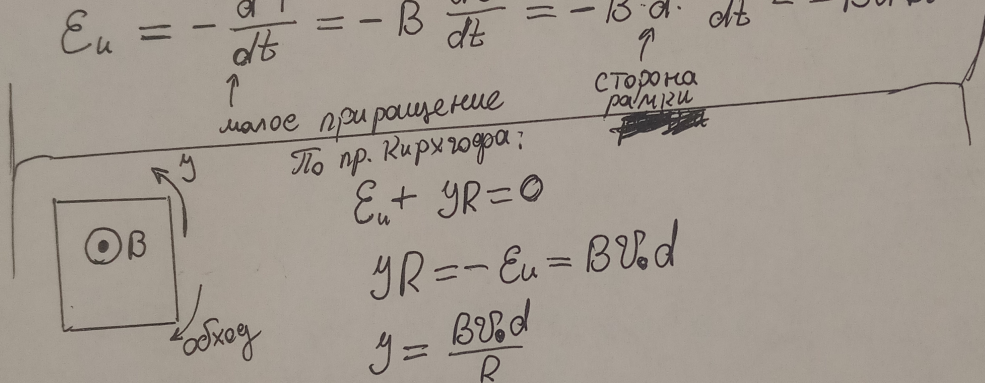 Ɛи = - d / dt = - B d / dt = - B · d · / dt = -
малое приращение
сторона рамки
По пр. Кирхгофа:
Ɛи + YR = 0
YR = - Ɛи = Bv₀d
Y = Bv₀d / R
Y
B
обход